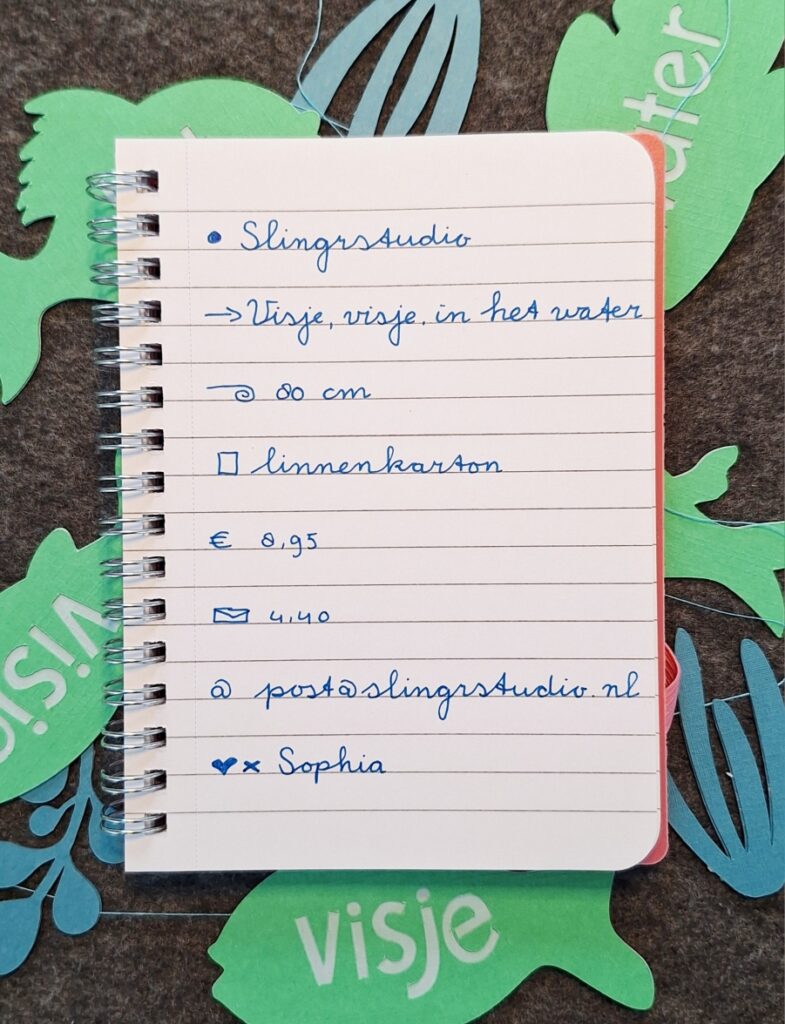 • Slingrstudio
→ Visje, visje, in het water
80 cm
linnenkarton
€ 8,95
4,40
@ post@slingrstudio.nl
♥ x Sophia
water
visje
visje